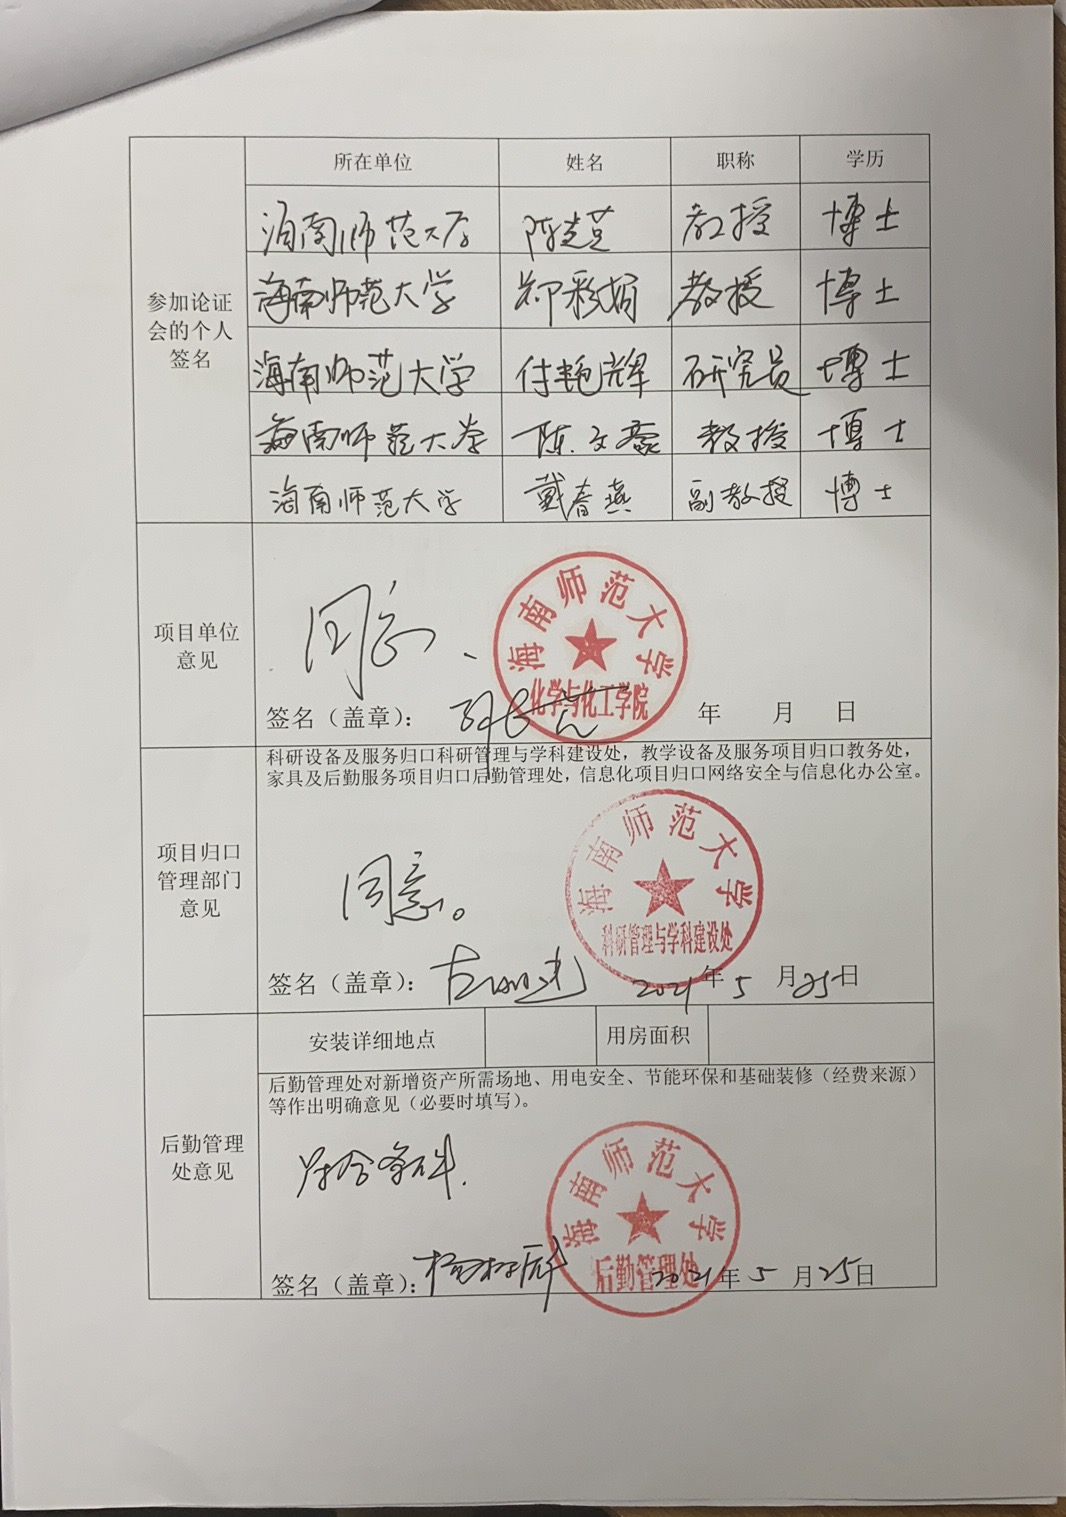 所在单位 姓名 职称 学历
参加论证
会的个人
签名
海南师范大学 陈光英 教授 博士
海南师范大学 郑彩娟 教授 博士
海南师范大学 付艳辉 研究员 博士
海南师范大学 陈文豪 教授 博士
海南师范大学 戴春燕 副教授 博士
项目单位
意见
同意
海南师范大学
化学与化工学院
签名（盖章）： 年 月 日
项目归口
管理部门
意见
科研设备及服务归口科研管理与学科建设处，教学设备及服务项目归口教务处，
家具及后勤服务项目归口后勤管理处，信息化项目归口网络安全与信息化办公室。
同意。
海南师范大学
科研管理与学科建设处
签名（盖章）： 2021年5月25日
后勤管理
处意见
安装详细地点 用房面积
后勤管理处对新增资产所需场地、用电安全、节能环保和基础装修（经费来源）
等作出明确意见（必要时填写）。
符合条件.
海南师范大学
后勤管理处
签名（盖章）： 2021年5月25日